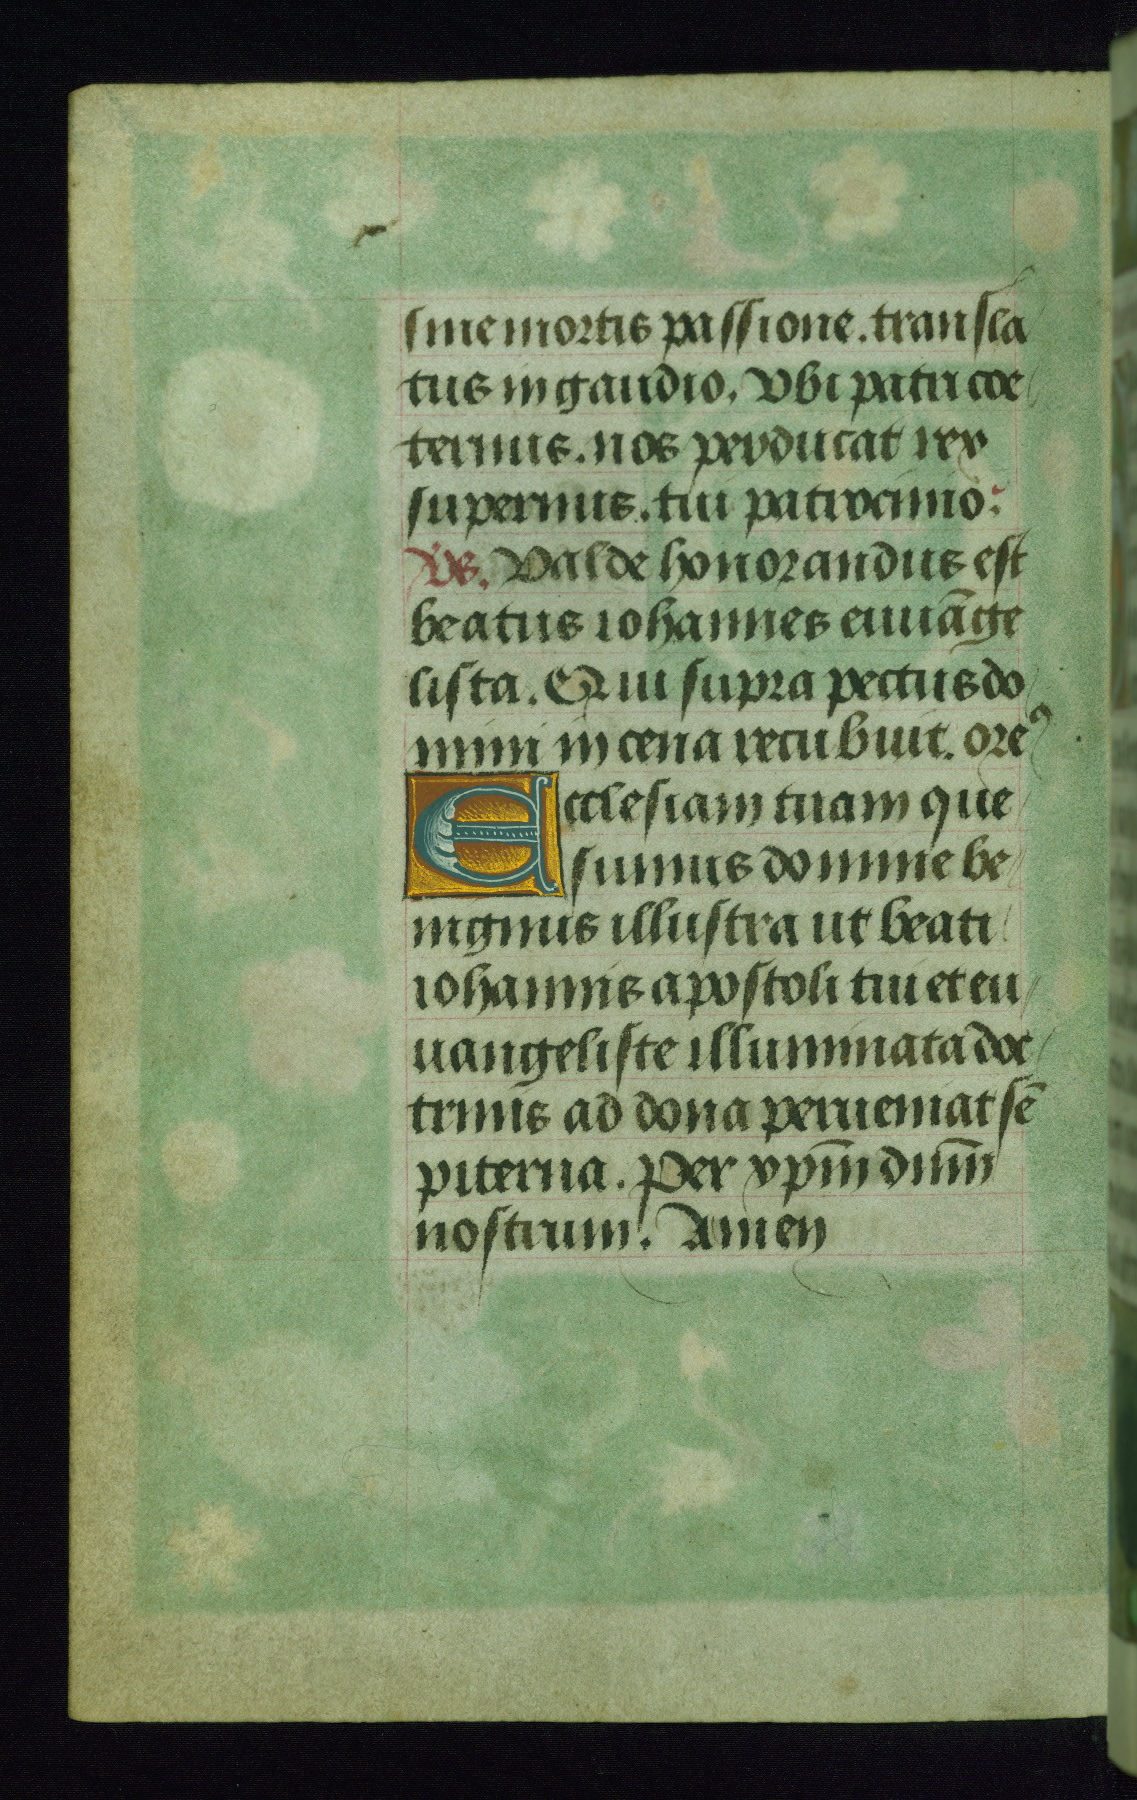 sine mortis passione. transla
tus in gaudio. Vbi patri coe
ternus. nos perducat rex
supernus. tui patrocinio:
Vs. Valde honorandus est
beatus iohannes euuāge
lista. Qui supra pectus do
mini in cena recubuit. ore⁹
Ecclesiam tuam que
sumus domine be
nignus illustra ut beati
iohannis apostoli tui et eu
uangeliste illuminata doc
trinis ad dona perueniat sē
piterna. Per xp̄m dn̄m
nostrum. Amen